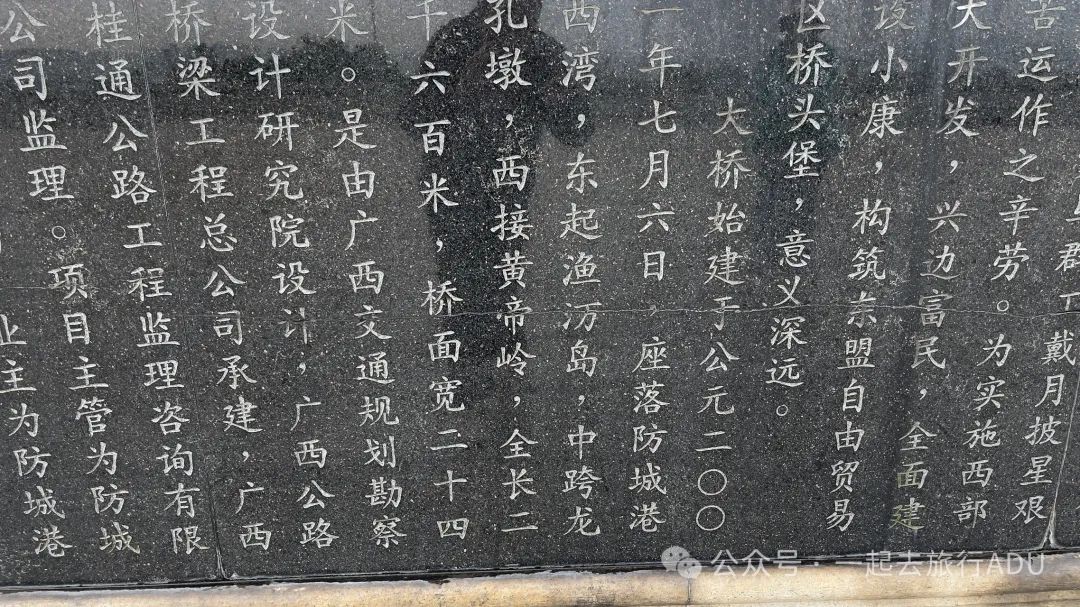 群工戴月披星艰
苦运作之辛劳。为实施西部
大开发，兴边富民，全面建
设小康，构筑东盟自由贸易
区桥头堡，意义深远。
大桥始建于公元二〇〇
一年七月六日。座落防城港
西湾，东起渔沥岛，中跨龙
孔墩，西接黄帝岭，全长二
千六百米，桥面宽二十四
米。是由广西交通规划勘察
设计研究院设计，广西公路
桥梁工程总公司承建，广西
桂通公路工程监理咨询有限
公司监理。项目主管为防城
业主为防城港
公众号·一起去旅行ADU